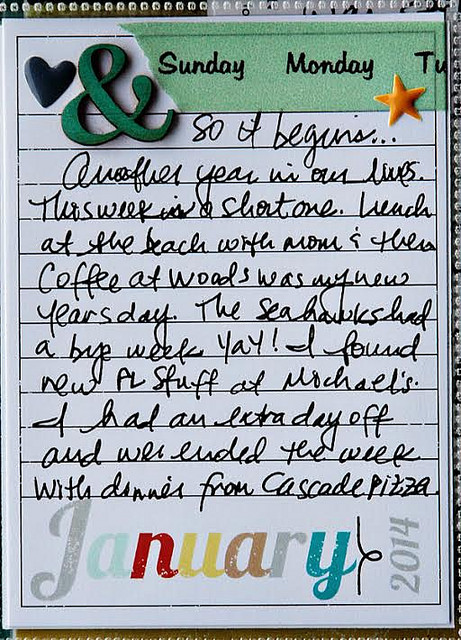 &
Sunday Monday Tu
So it begins...
Another year in our lives.
This week is a short one. Lunch
at the beach with mom & then
Coffee at Woods was my new
years day. The Seahawks had
a bye week YAY! I found
new PL Stuff at Michael's.
I had an extra day off
and we ended the week
With dinner from Cascade Pizza.
January
2014